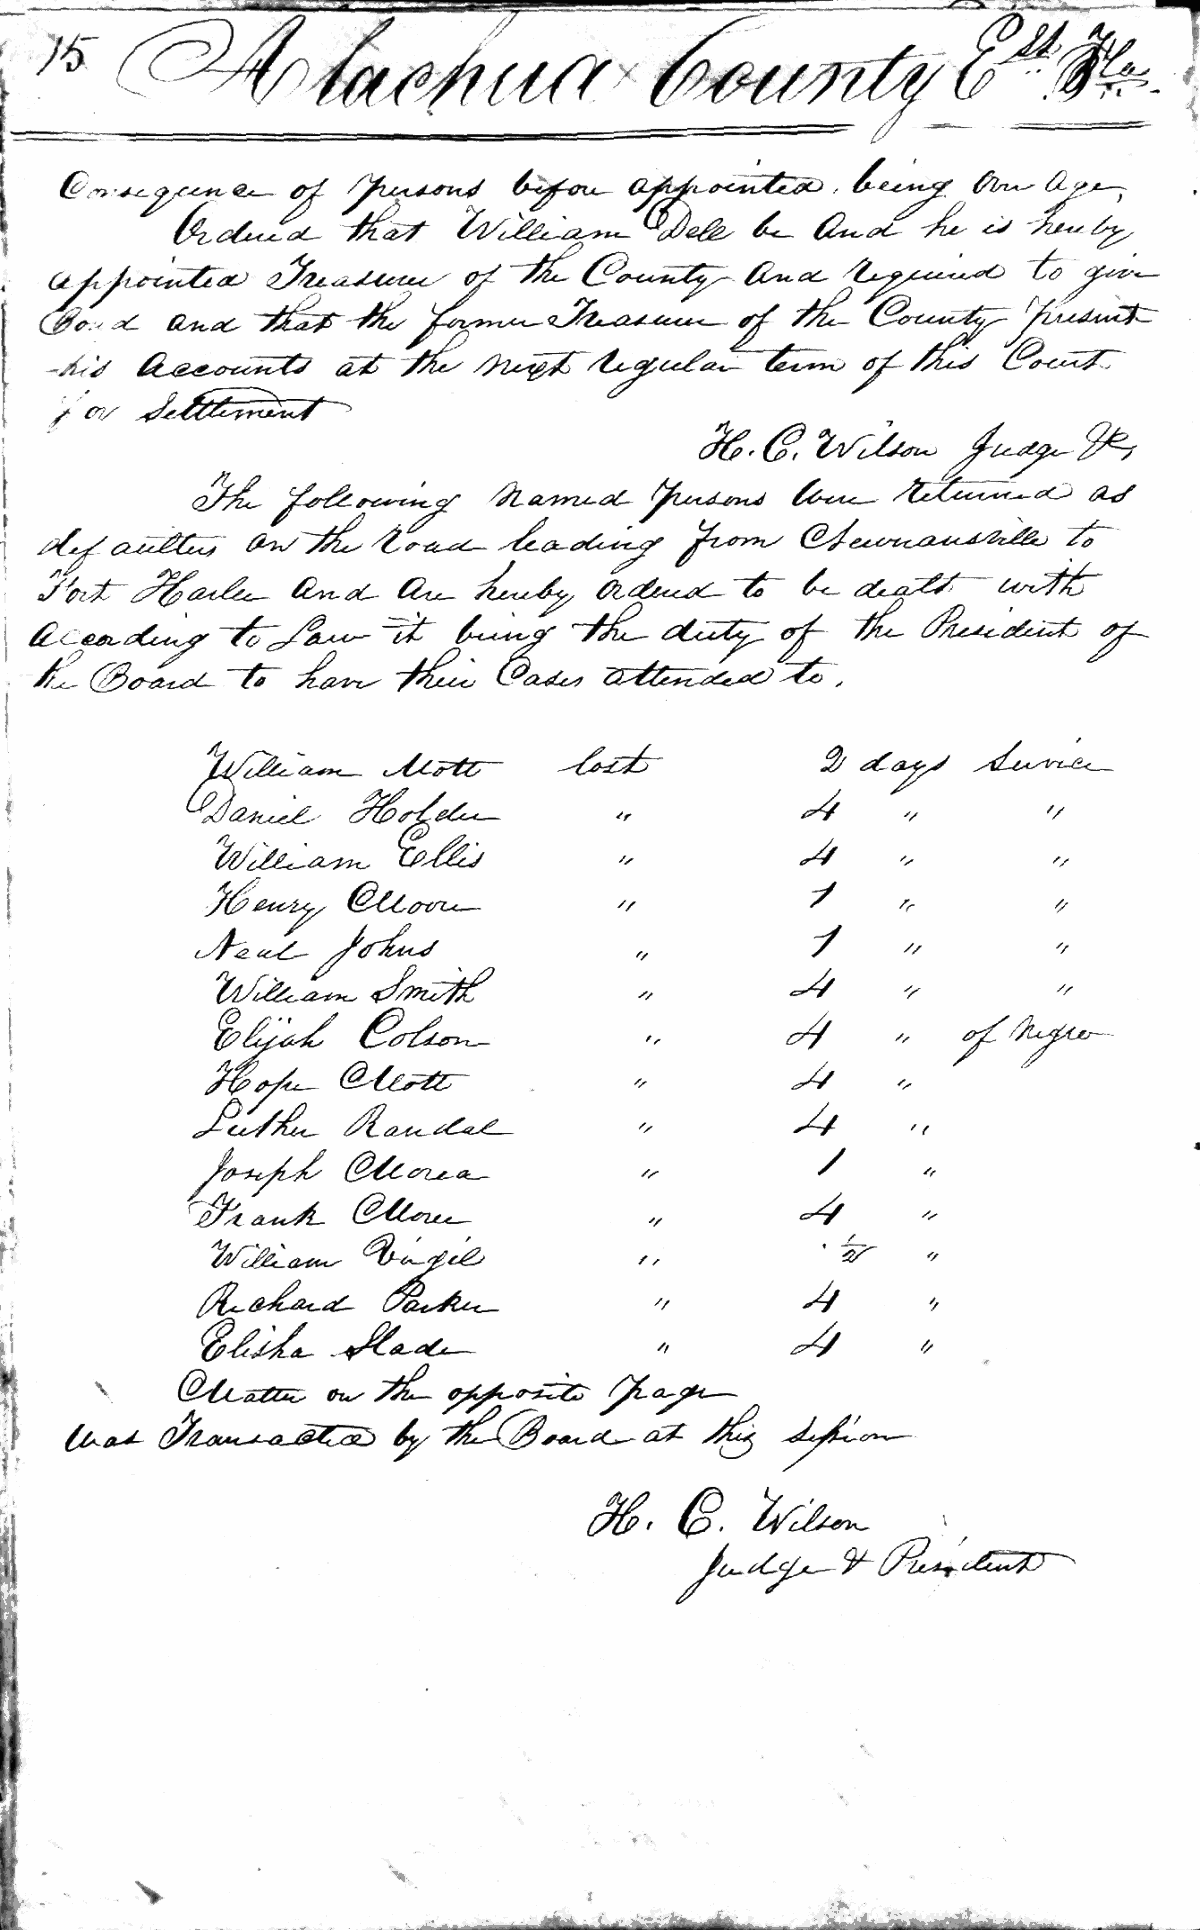 15 Alachua County Est Fla.
Consequence of persons before appointed being over age,
Ordered that William Dell be and he is hereby
appointed Treasurer of the County and required to give
Bond and that the former Treasurer of the County present
his accounts at the next regular term of this Court
for Settlement
H. C. Wilson Judge &c,
The following named persons were returned as
defaulters on the road leading from Newnansville to
Fort Harlee and are hereby ordered to be dealt with
according to Law it being the duty of the President of
the Board to have their Cases attended to.
William Mott lost 2 days Service
Daniel Holder " 4 " "
William Ellis " 4 " "
Henry Moore " 1 " "
Neal Johns " 1 " "
William Smith " 4 " "
Elijah Colson " 4 " of Negro
Hope Mott " 4 "
Luther Randal " 4 "
Joseph " 1 "
Frank " 4 "
William Virgil " 1/2 "
Richard Parker " 4 "
Elisha Slade " 4 "
Matter on the opposite page
was Transacted by the Board at this session
H. C. Wilson
Judge & President